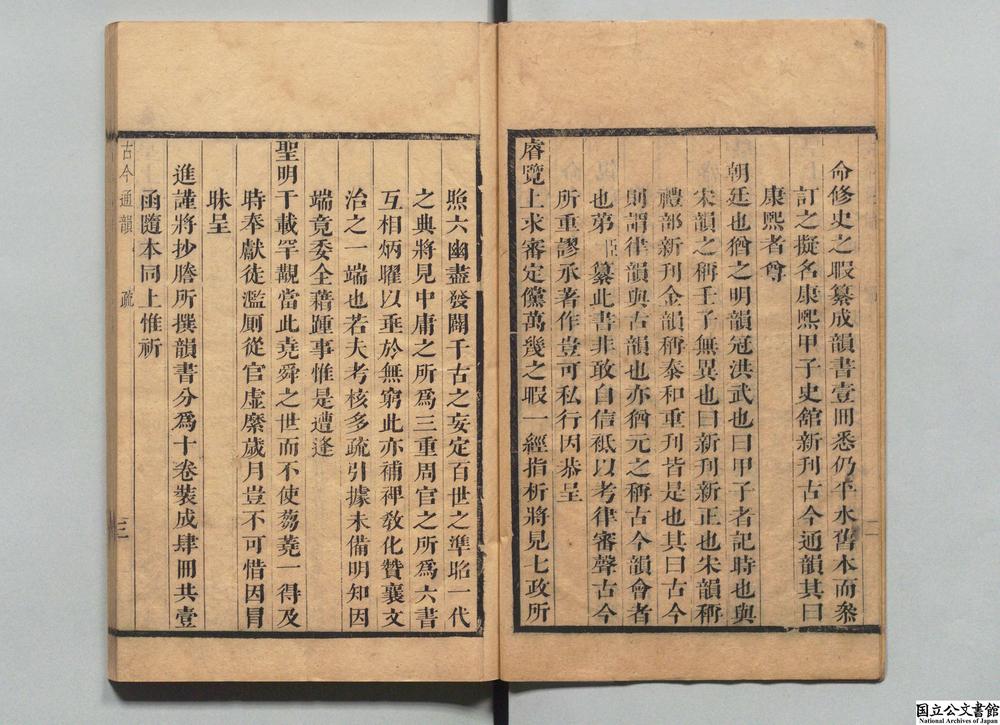 命修史之暇纂成韻書壹冊悉仍平水舊本而叅
訂之擬名康熙甲子史舘新刊古今通韻其曰
康熙者尊
朝廷也猶之明韻冠洪武也曰甲子者記時也與
宋韻之稱壬子無異也曰新刊新正也宋韻稱
禮部新刊金韻稱泰和重刊皆是也其曰古今
則謂律韻與古韻也亦猶元之稱古今韻會者
也第臣纂此書非敢自信秪以考律審聲古今
所重謬承著作豈可私行因恭呈
睿覽上求審定儻萬幾之暇一經指析將見七政所
二
照六幽盡發闢千古之妄定百世之準踏一代
之典將見中庸之所爲三重周官之所爲六書
互相炳曜以垂於無窮此亦補裨敎化贊襄文
治之一端也若夫考核多疏引據未備明知因
端竟委全藉踵事惟是遭逢
聖明千載罕觀當此堯舜之世而不使蒭蕘一得及
時奉獻徒濫厠從官虛縻歲月豈不可惜因冒
昧呈
進謹將抄謄所撰韻書分爲十卷裝成肆冊共壹
函隨本同上惟祈
古今通韻 疏 三
国立公文書館
National Archives of Japan